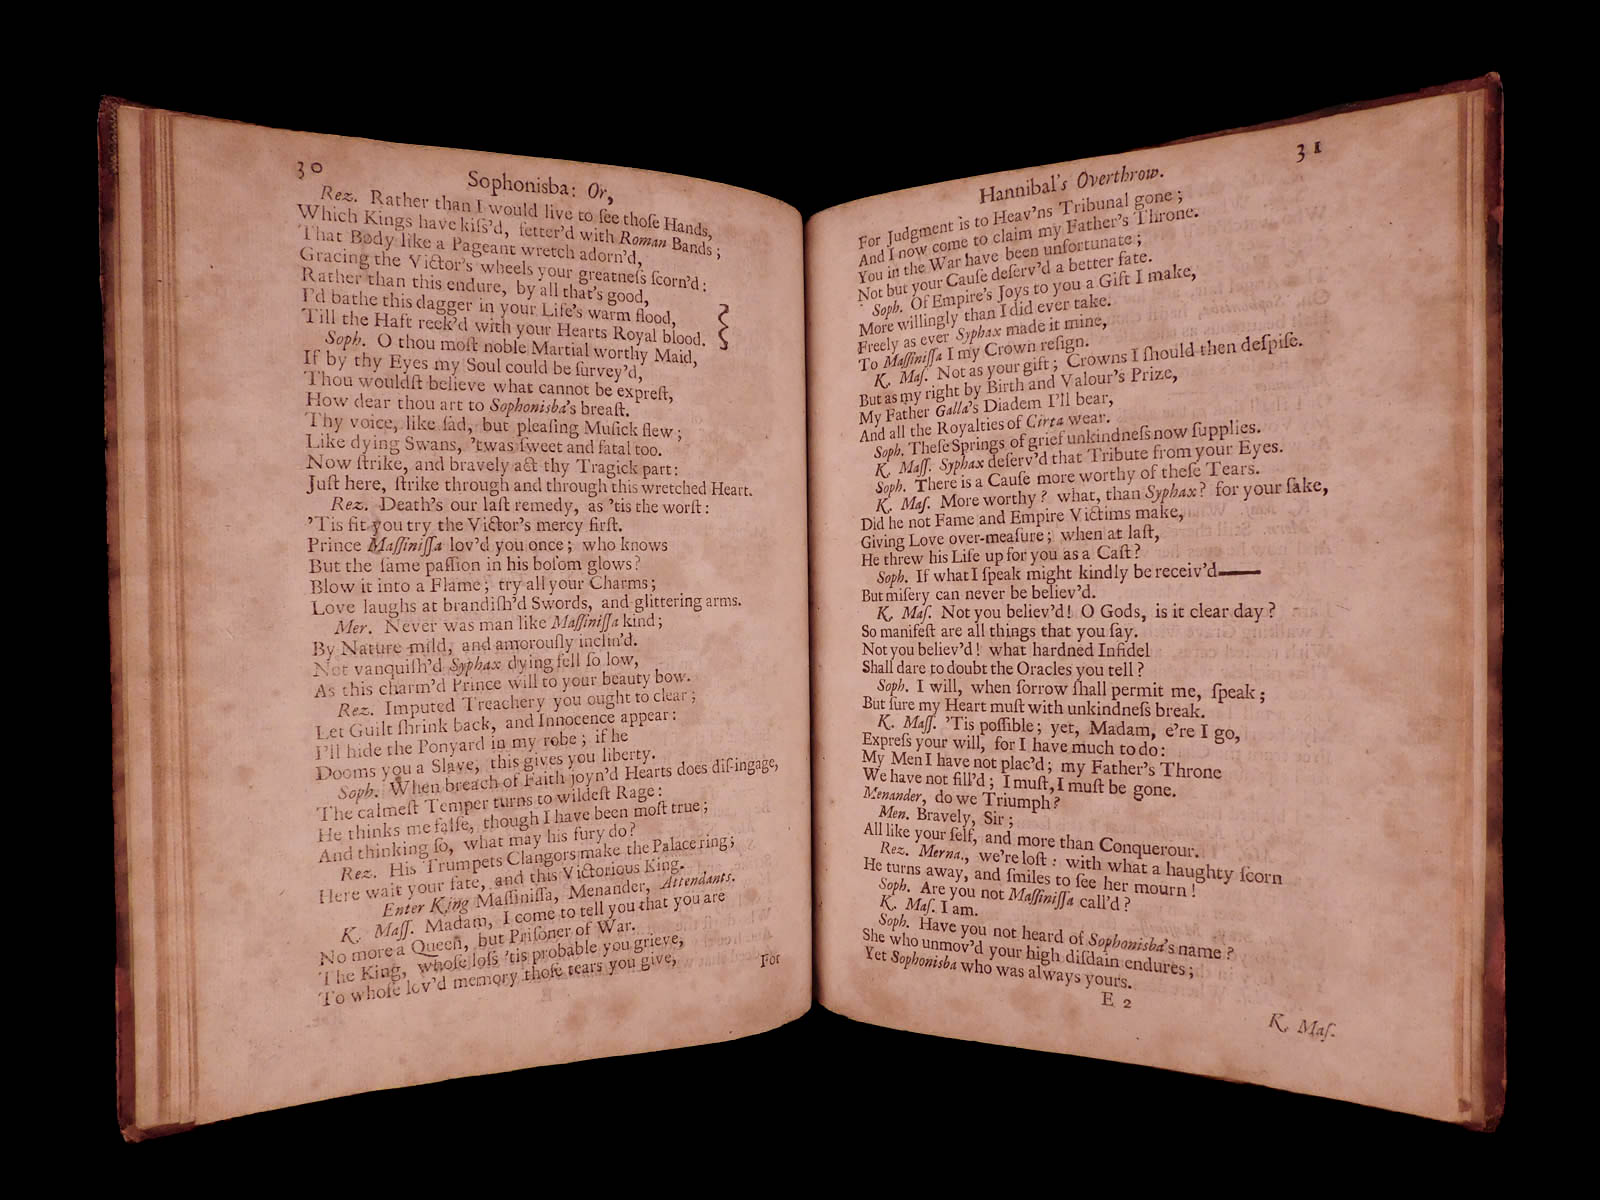 30
Sophonisba: Or,
Rez. Rather than I would live to ſee thoſe Hands,
Which Kings have kiſs'd, fetter'd with Roman Bands;
That Body like a Pageant wretch adorn'd,
Gracing the Victor's wheels your greatneſs ſcorn'd:
Rather than this endure, by all that's good,
I'd bathe this dagger in your Life's warm flood,
Till the Haft reek'd with your Hearts Royal blood.
Soph. O thou moſt noble Martial worthy Maid,
If by thy Eyes my Soul could be ſurvey'd,
Thou wouldſt believe what cannot be expreſt,
How dear thou art to Sophonisba's breaſt.
Thy voice, like ſad, but pleaſing Muſick flew;
Like dying Swans, 'twas ſweet and fatal too.
Now ſtrike, and bravely act thy Tragick part:
Juſt here, ſtrike through and through this wretched Heart.
Rez. Death's our laſt remedy, as 'tis the worſt:
'Tis fit you try the Victor's mercy firſt.
Prince Maſſiniſſa lov'd you once; who knows
But the ſame paſſion in his boſom glows?
Blow it into a Flame; try all your Charms;
Love laughs at brandiſh'd Swords, and glittering arms.
Mer. Never was man like Maſſiniſſa kind;
By Nature mild, and amorouſly inclin'd.
Not vanquiſh'd Syphax dying fell ſo low,
As this charm'd Prince will to your beauty bow.
Rez. Imputed Treachery you ought to clear;
Let Guilt ſhrink back, and Innocence appear:
I'll hide the Ponyard in my robe; if he
Dooms you a Slave, this gives you liberty.
Soph. When breach of Faith joyn'd Hearts does diſ-ingage,
The calmeſt Temper turns to wildeſt Rage:
He thinks me falſe, though I have been moſt true;
And thinking ſo, what may his fury do?
Rez. His Trumpets Clangors make the Palace ring;
Here wait your fate, and this Victorious King.
Enter King Maſſiniſſa, Menander, Attendants.
K. Maſſ. Madam, I come to tell you that you are
No more a Queen, but Priſoner of War.
The King, whoſe loſs 'tis probable you grieve,
To whoſe lov'd memory thoſe tears you give,
For
31
Hannibal's Overthrow.
For Judgment is to Heav'ns Tribunal gone;
And I now come to claim my Father's Throne.
You in the War have been unfortunate;
Not but your Cauſe deſerv'd a better fate.
Soph. Of Empire's Joys to you a Gift I make,
More willingly than I did ever take.
Freely as ever Syphax made it mine,
To Maſſiniſſa I my Crown reſign.
K. Maſ. Not as your gift; Crowns I ſhould then deſpiſe.
But as my right by Birth and Valour's Prize,
My Father Galla's Diadem I'll bear,
And all the Royalties of Cirta wear.
Soph. Theſe Springs of grief unkindneſs now ſupplies.
K. Maſſ. Syphax deſerv'd that Tribute from your Eyes.
Soph. There is a Cauſe more worthy of theſe Tears.
K. Maſ. More worthy? what, than Syphax? for your ſake,
Did he not Fame and Empire Victims make,
Giving Love over-meaſure; when at laſt,
He threw his Life up for you as a Caſt?
Soph. If what I ſpeak might kindly be receiv'd——
But miſery can never be believ'd.
K. Maſ. Not you believ'd! O Gods, is it clear day?
So manifeſt are all things that you ſay.
Not you believ'd! what hardned Infidel
Shall dare to doubt the Oracles you tell?
Soph. I will, when ſorrow ſhall permit me, ſpeak;
But ſure my Heart muſt with unkindneſs break.
K. Maſſ. 'Tis poſſible; yet, Madam, e're I go,
Expreſs your will, for I have much to do:
My Men I have not plac'd; my Father's Throne
We have not fill'd; I muſt, I muſt be gone.
Menander, do we Triumph?
Men. Bravely, Sir;
All like your ſelf, and more than Conquerour.
Rez. Merna., we're loſt: with what a haughty ſcorn
He turns away, and ſmiles to ſee her mourn!
Soph. Are you not Maſſiniſſa call'd?
K. Maſ. I am.
Soph. Have you not heard of Sophonisba's name?
She who unmov'd your high diſdain endures;
Yet Sophonisba who was always yours.
E 2
K. Maſ.